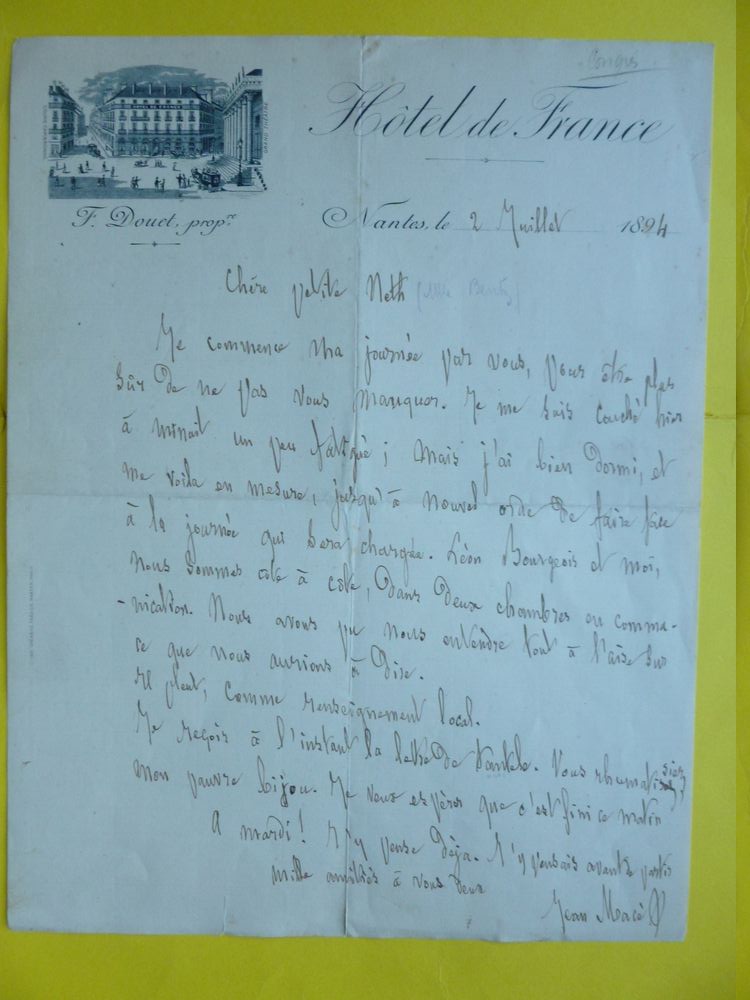 Congrès
Hôtel de France
F. Douet, propre
Nantes, le 2 Juillet 1894
Chère petite Neth
Je commence ma journée par vous, pour être plus
sûr de ne pas vous manquer. Je me suis couché hier
à minuit un peu fatigué ; mais j'ai bien dormi, et
me voila en mesure, jusqu'à nouvel ordre de faire face
à la journée qui sera chargée. Léon Bourgeois et moi,
nous sommes côte à côte, dans deux chambres en commu-
-nication. Nous avons pu nous entendre tout à l'aise sur
ce que nous aurions à dire.
Il pleut, comme renseignement local.
Je reçois à l'instant la lettre de tantele. Vous rhumatisée
mon pauvre bijou. Je veux espérer que c'est fini ce matin
A mardi ! J'y pense déja. J'y pensais avant de partir
mille amitiés à vous deux
Jean Macé